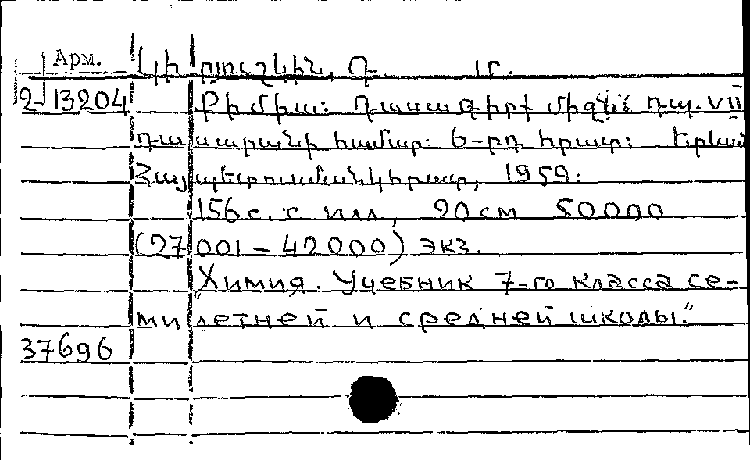 Арм.
Կիրյուշկին, Դ.
2-13204
Քիմիա: Դասագիրք միջն. դպ. VII
դասարանի համար: 6-րդ հրատ: Երևան
Հայպետուսմանկհրատ, 1959:
156 с. с илл, 20 см 50000
(27001-42000) экз.
"Химия. Учебник 7-го класса се-
милетней и средней школы."
37696